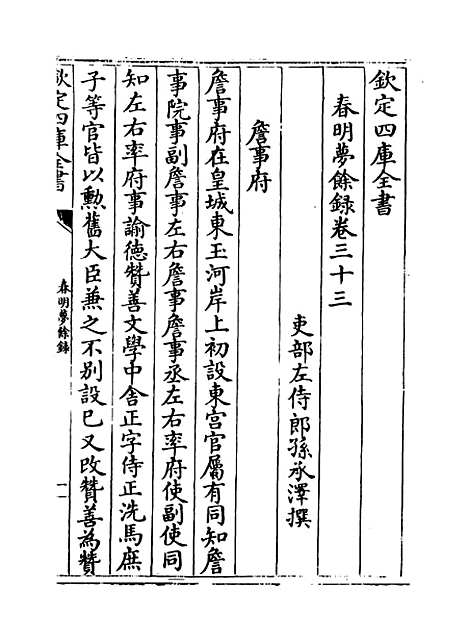 欽定四庫全書
春明夢餘録卷三十三
吏部左侍郎孫承澤撰
詹事府
詹事府在皇城東玉河岸上初設東宫官屬有同知詹
事院事副詹事左右詹事詹事丞左右率府使副使同
知左右率府事諭德贊善文學中舍正字侍正洗馬庶
子等官皆以勲舊大臣兼之不别設已又改贊善為贊
欽定四庫全書
春明夢餘録
一